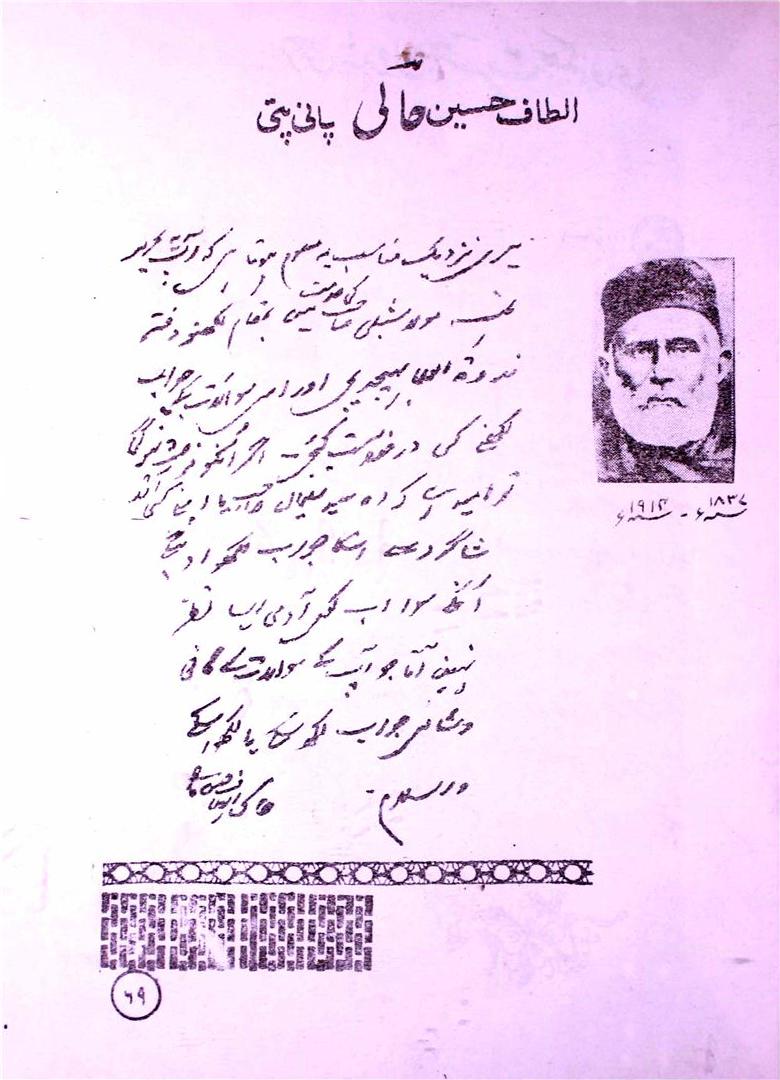 الطاف حسین حالی پانی پتی
میری نزدیک مناسب یہ معلوم ہوتا ہی کہ آپ یہ
مولانا شبلی صاحب کی خدمت میں بمقام لکھنو دفتر
ندوۃ العلما بھیجدیجی اور اس سوالات کا جواب
لکھنے کی درخواست کیجئی۔ اگر انکو فرصت نہو گی
تو امید ہی کہ وہ سید سلیمان صاحب یا اپنے کسی اور
شاگرد سے اسکا جواب لکھوا دینگے
انکے سوا اب کوئی آدمی ایسا نظر
نہیں آتا جو آپ کے سوالات کے کافی
و شافی جواب لکھ سکے یا لکھوا سکے
والسلام۔
۱۸۳۷ء - ۱۹۱۴ء
۶۹